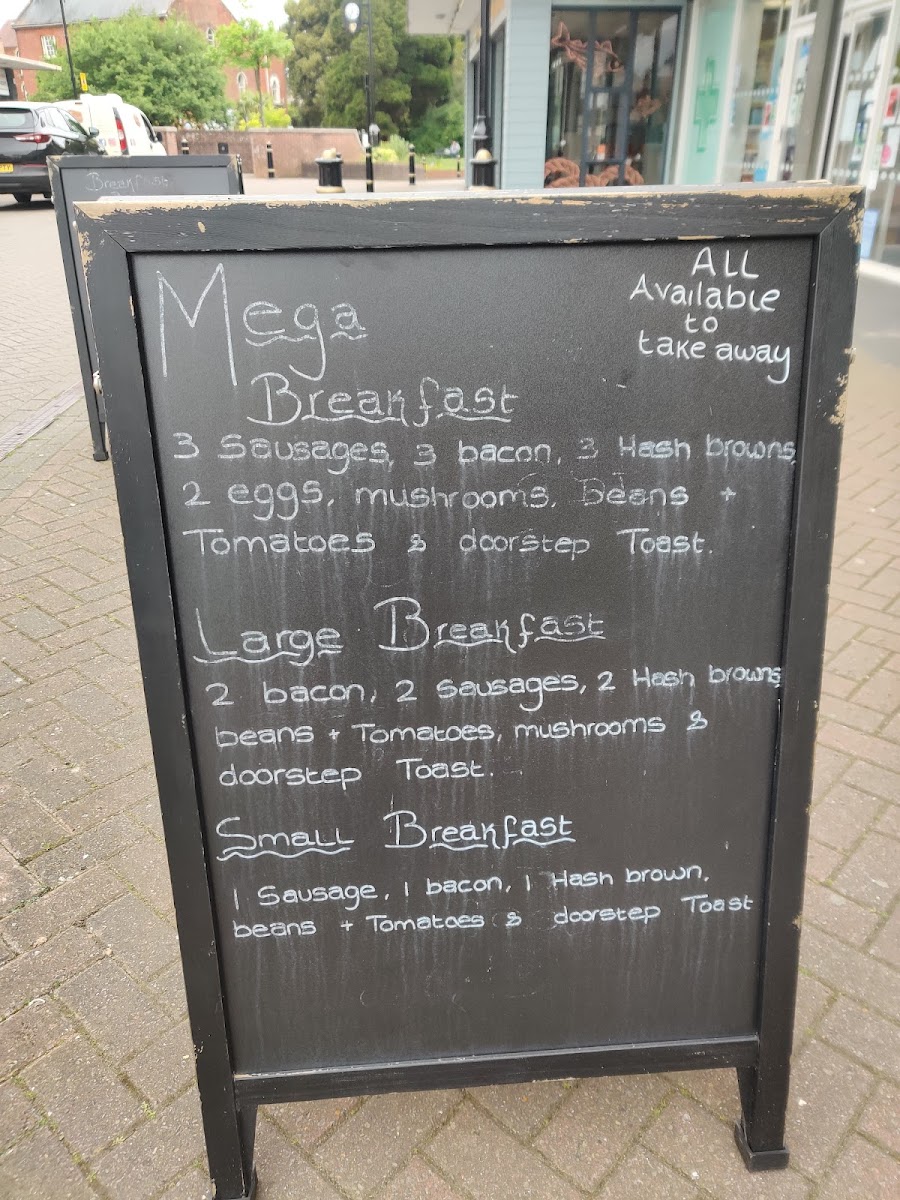 Breakfast
Mega
Breakfast
ALL
Available
to
take away
3 Sausages, 3 bacon, 3 Hash browns,
2 eggs, mushrooms, beans +
Tomatoes & doorstep Toast.
Large Breakfast
2 bacon, 2 Sausages, 2 Hash browns,
beans + Tomatoes, mushrooms &
doorstep Toast.
Small Breakfast
1 Sausage, 1 bacon, 1 Hash brown,
beans + Tomatoes & doorstep Toast